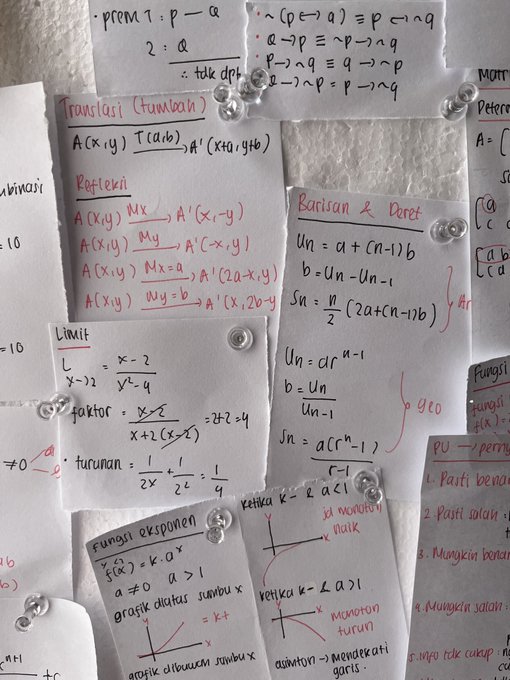 · prem 1 : p — Q
2 : Q
∴ tdk dpt
· ~(p ↔ q) ≡ p ↔ ~q
· Q → p ≡ ~p → ~q
· P → ~q ≡ q → ~p
→ ~p = p → ~q
Translasi (tumbah)
A(x,y) T(a,b)→ A'(x+a, y+b)
Refleksi
A(x,y) Mx→ A'(x,-y)
A(x,y) My→ A'(-x,y)
A(x,y) Mx=a→ A'(2a-x,y)
A(x,y) My=b→ A'(x,2b-y
Barisan & Deret
Un = a + (n-1)b
b = Un - Un-1
Sn = n/2 (2a+(n-1)b)
Ar
Un = ar^n-1
b = Un/Un-1
Sn = a(r^n-1)/r-1
geo
Limit
L x→2 = x-2/x²-4
faktor = x-2/x+2(x-2) = 2+2 = 4
· turunan = 1/2x + 1/2² = 1/4
Fungsi eksponen
f(x) = k.a^x
a ≠ 0 a > 1
grafik diatas sumbu x
y
= k+
x
grafik dibawah sumbu x
ketika k- & a<1
y
jd monoton
naik
x
ketika k- & a>1
y
x
monoton
turun
asimtot → mendekati
garis.
binasi
= 10
= 10
≠0
ab
b)
Matri
A = [
[a
c d
[a b
[c d
Fungsi
fungsi
f(x) =
PU → perny
1. Pasti benar
2. Pasti salah :
3. Mungkin benar
4. Mungkin salah :
5. Info tdk cukup :